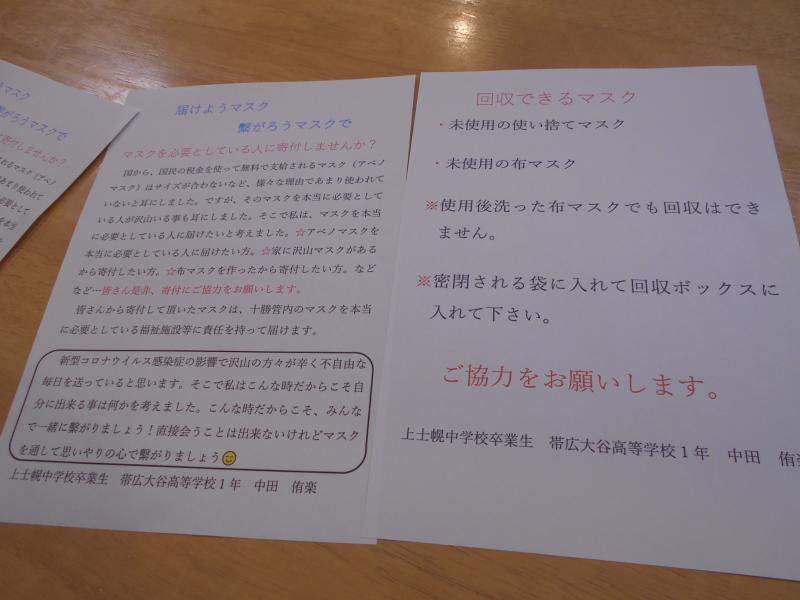 マスク
繋がろうマスクで
寄付しませんか？
届けようマスク
繋がろうマスクで
マスクを必要としている人に寄付しませんか？
国から、国民の税金を使って無料で支給されるマスク（アベノ
マスク）はサイズが合わないなど、様々な理由であまり使われて
いないと耳にしました。ですが、そのマスクを本当に必要として
いる人が沢山いる事も耳にしました。そこで私は、マスクを本当
に必要としている人に届けたいと考えました。☆アベノマスクを
本当に必要としている人に届けたい方。☆家に沢山マスクがある
から寄付したい方。☆布マスクを作ったから寄付したい方。など
など…皆さん是非、寄付にご協力をお願いします。
皆さんから寄付して頂いたマスクは、十勝管内のマスクを本当
に必要としている福祉施設等に責任を持って届けます。
新型コロナウイルス感染症の影響で沢山の方々が辛く不自由な
毎日を送っていると思います。そこで私はこんな時だからこそ自
分に出来る事は何かを考えました。こんな時だからこそ、みんな
で一緒に繋がりましょう！直接会うことは出来ないけれどマスク
を通して思いやりの心で繋がりましょう😊
上士幌中学校卒業生　帯広大谷高等学校１年　中田　侑楽
回収できるマスク
・未使用の使い捨てマスク
・未使用の布マスク
※使用後洗った布マスクでも回収はでき
ません。
※密閉される袋に入れて回収ボックスに
入れて下さい。
ご協力をお願いします。
上士幌中学校卒業生　帯広大谷高等学校１年　中田　侑楽